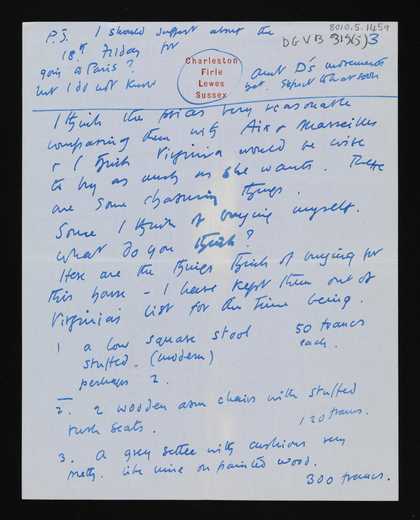 8010.5.1459
P.S. I should suggest about the
18th Friday for
DGVB 315(i)3
going to Paris?
Charleston
Firle
Lewes
Sussex
aunt D's movements
but I do not know
yet. Expect to hear soon
I think the prices very reasonable
comparing them with Aix & Marseilles
& I think Virginia would be wise
to buy as much as she wants. There
are some charming things.
Some I think of buying myself.
What do you think?
Here are the things I think of buying for
this house - I have kept them out of
Virginia's list for the time being.
1 a low square stool 50 francs
stuffed. (modern) each.
perhaps 2.
2. 2 wooden arm chairs with stuffed
rush seats. 120 francs.
3. A grey settee with cushions very
pretty. like mine on painted wood.
300 francs.